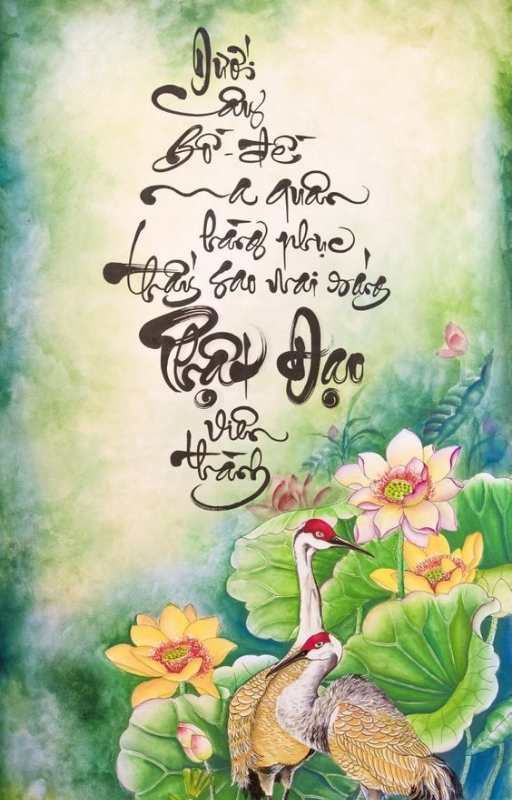 Dưới
Cây
Bồ-đề
ma quân
hàng phục
thấy sao mai sáng
Phật Đạo
viên
thành